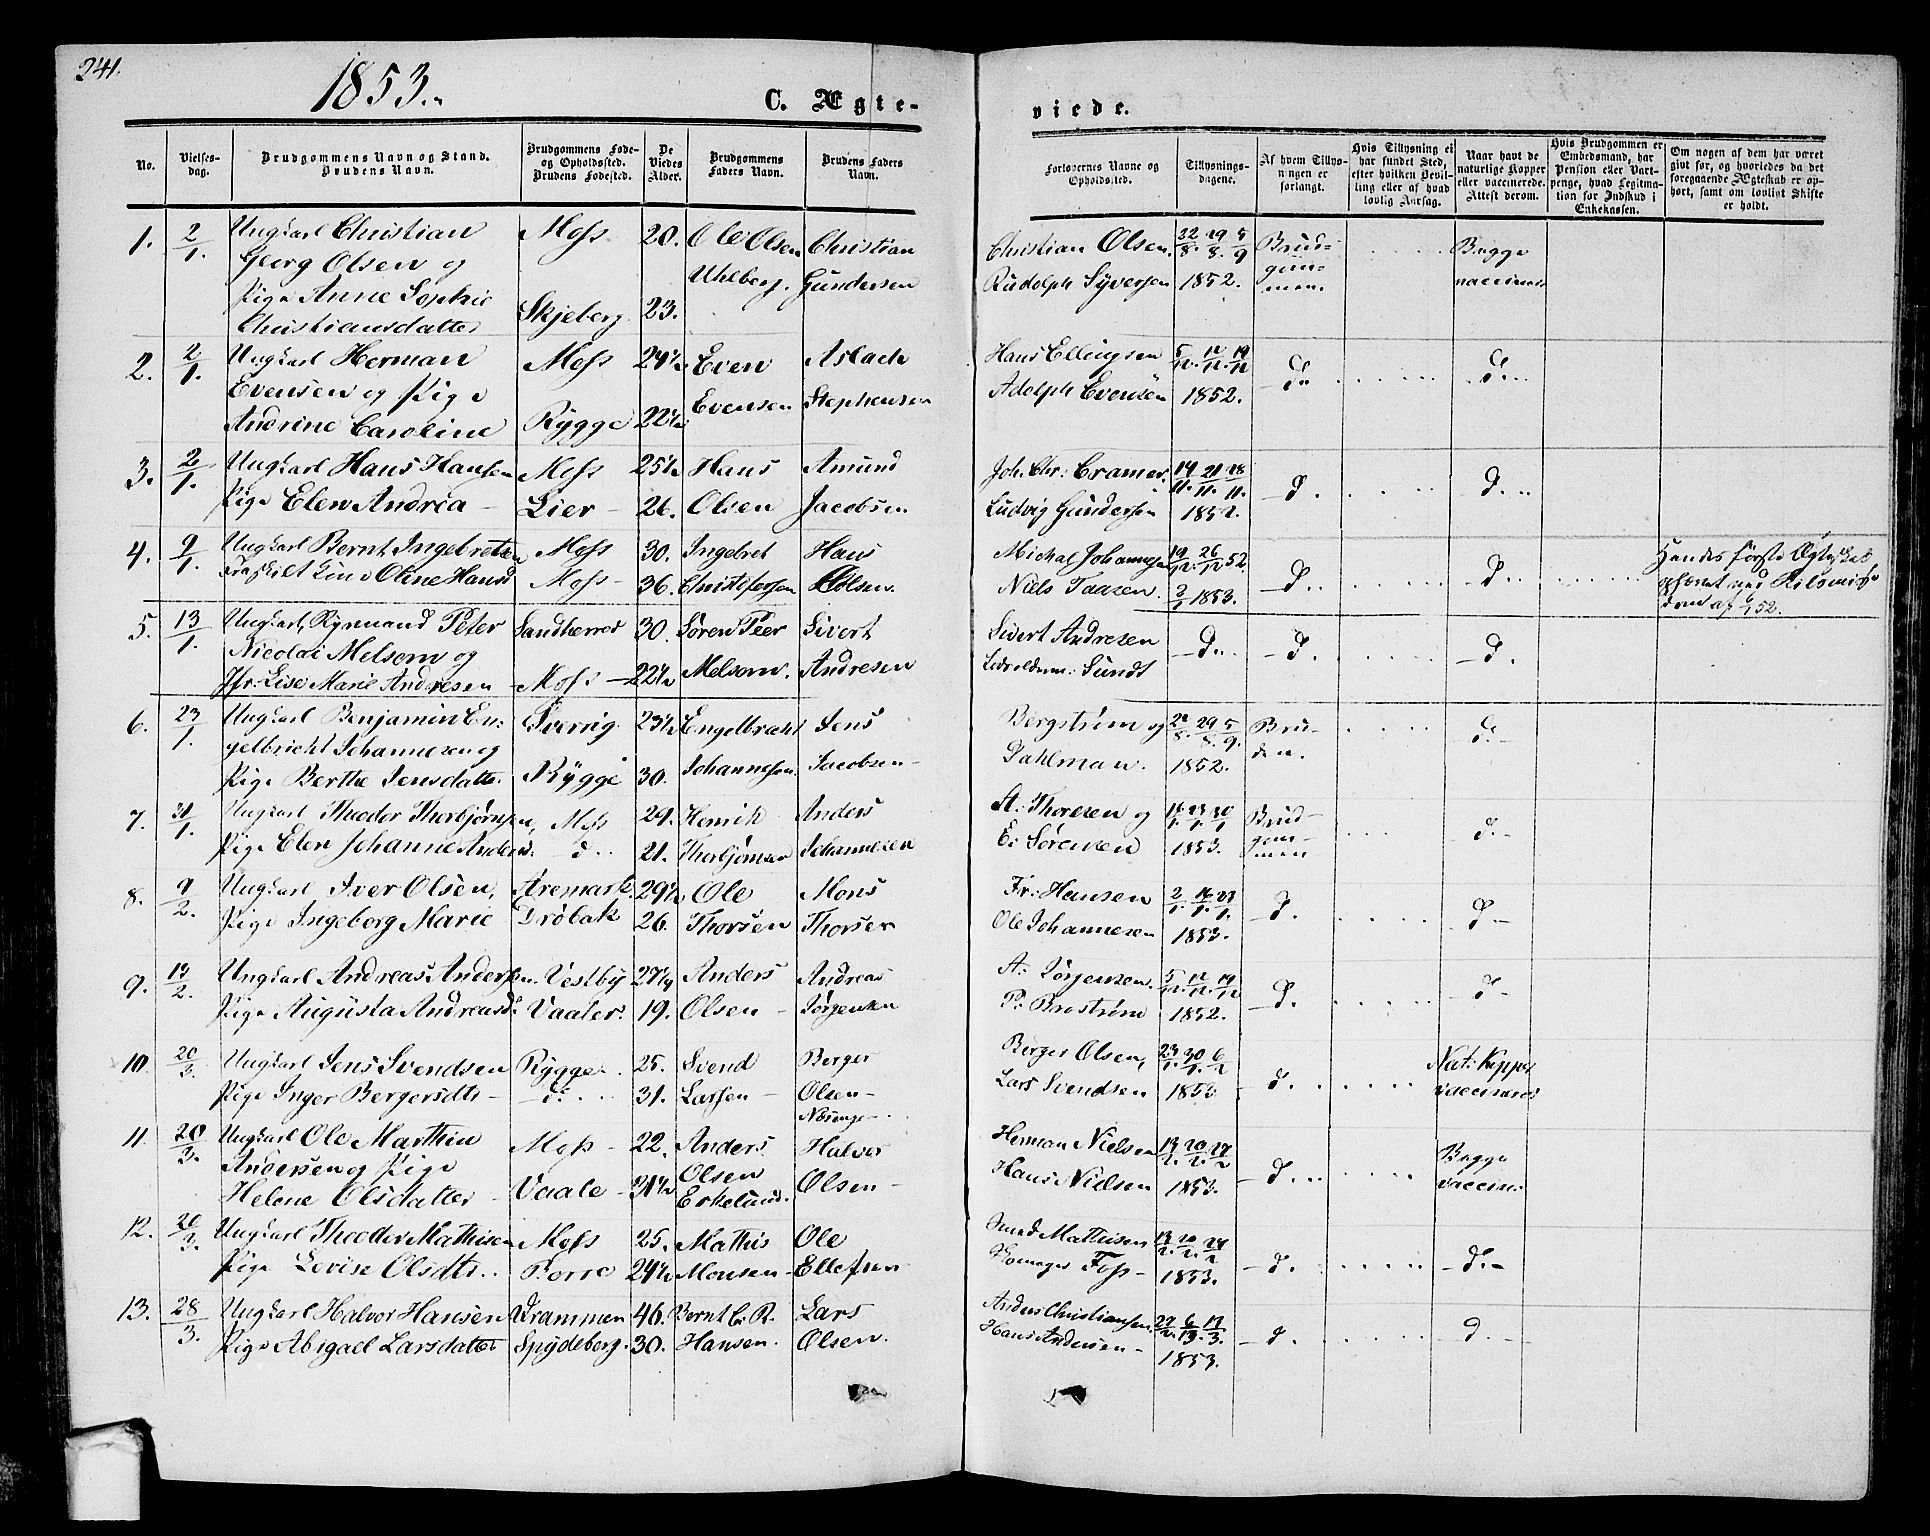 241.
1853.
C. Ægte-
viede.
No.
Vielses-
dag.
Brudgommens Navn og Stand.
Brudens Navn.
Brudgommens Føde-
og Opholdssted.
Brudens Fødested.
De
Viedes
Alder.
Brudgommens
Faders Navn.
Brudens Faders
Navn.
Forlovernes Navne og
Opholdssted.
Tillysnings-
dagene.
Af hvem Tillys-
ningen er
forlangt.
Hvis Tillysning ei
har fundet Sted,
efter hvilken Bevil-
ling eller af hvad
lovlig Aarsag.
Naar havt de
naturlige Kopper
eller vaccinerede.
Attest derom.
Hvis Brudgommen er
Embedsmand, har
Pension eller Vart-
penge, hvad Legitima-
tion for Indskud i
Enkekassen.
Om nogen af dem har været
givt før, og hvorledes da det
foregaaende Ægteskab er op-
hørt, samt om lovligt Skifte
er holdt.
1. 2/1. Ungkarl Christian Moss 20. Ole Olsen Christian
Georg Olsen og Uhlberg. Gundersen
Pige Anne Sophie Skjeberg 23.
Christiansdatter
Christian Olsen. 22/8. 29/8. 5/9 Brud- Begge
Rudolph Syversen 1852. gom- vaccinert
men.
2. 2/1. Ungkarl Herman Moss 24½ Even Aslach
Evensen og Pige Evensen Stephensen
Andrine Caroline Rygge 22½
Hans Ellingsen 5/12. 12/12. 19/12 d. d.
Adolph Evensen 1852.
3. 2/1. Ungkarl Hans Hansen Moss 25½ Hans Amund
Pige Elen Andrea Lier 26. Olsen Jacobsen
Joh. Chr: Cramer. 14/11. 21/11. 28/11. d. d.
Ludvig Gundersen 1852.
4. 9/1. Ungkarl Bernt Ingebretsen Moss 30. Ingebret Hans
Fraskilt Kone Oline Hansd Moss 36. Christophersen Olsen.
Michal Johannesen 19/12. 26/12 52. d. d. Hendes første Ægteskab
Niels Taasen. 2/1 1853. ophævet ved
dom af 6/1 52.
5. 13/1. Ungkarl, Peter Sandherred 30. Søren Peter Sivert
Nicolai Melsom og Melsom. Andresen
Jfr: Lise Marie Andresen Moss 22½
Sivert Andresen d. d. d.
Sundt
6. 23/1. Ungkarl Benjamin En- Sverrig 23½ Engelbrecht Jens
gelbricht Johannesen og Johannesen. Jacobsen
Pige Berthe Jensdatter. Rygge 30.
Bergstrøm og 22/8. 29/8. 5/9. Bru- d.
Dahlman. 1852. den.
7. 31/1. Ungkarl Theodor Thorbjørnsen, Moss 29. Henrik Anders
Pige Elen Johanne Anders. d. 21. Thorbjørnsen Johannesen
A: Thoresen og 16/1. 23/1. 30/1 Brud- d.
E: Sørensen 1853. gom-
men
8. 9/2. Ungkarl Iver Olsen, Aremark. 29½ Ole Mons
Pige Ingeborg Marie Drøbak 26. Thorsen Thorsen
Fr: Hansen 2/1. 16/1. 23/1. d. d.
Ole Johannesen 1853.
9. 13/2. Ungkarl Andreas Andersen. Vestby 27¼ Anders Andreas
Pige Augusta Andreasd. Vaaler. 19. Olsen Jørgensen
A: Jørgensen. 5/12. 12/12. 19/12 d. d.
P: Brostrøm 1852.
10. 20/3. Ungkarl Jens Svendsen Rygge 25. Svend Berger
Pige Inger Bergersdtr d. 31. Larsen Olsen
Berger Olsen, 23/1. 30/1. 6/2 d. Nat: Kopper
Lars Svendsen 1853 vaccineret
11. 20/3. Ungkarl Ole Marthin Moss 22. Anders. Halvor
Andersen og Pige Olsen Olsen
Helene Olsdatter Vaale 31½ Eskelund.
Herman Nielsen 13/2. 20/2. 27/2 d. Begge
Hans Nielsen 1853. vaccin:
12. 20/3. Ungkarl Theodor Mathisen Moss 25. Mathis Ole
Pige Lovise Olsdtr. Borre 24½ Monsen Ellefsen
Mathisen 13/2. 20/2. 27/2 d. d.
Foss 1853.
13. 28/3. Ungkarl Halvor Hansen Drammen 46. Bernt C. R. Lars
Pige Abigael Larsdatter Spydeberg. 30. Hansen. Olsen.
Anders Christiansen 27/2. 6/3 13/3. d. d.
Hans Andersen 1853.